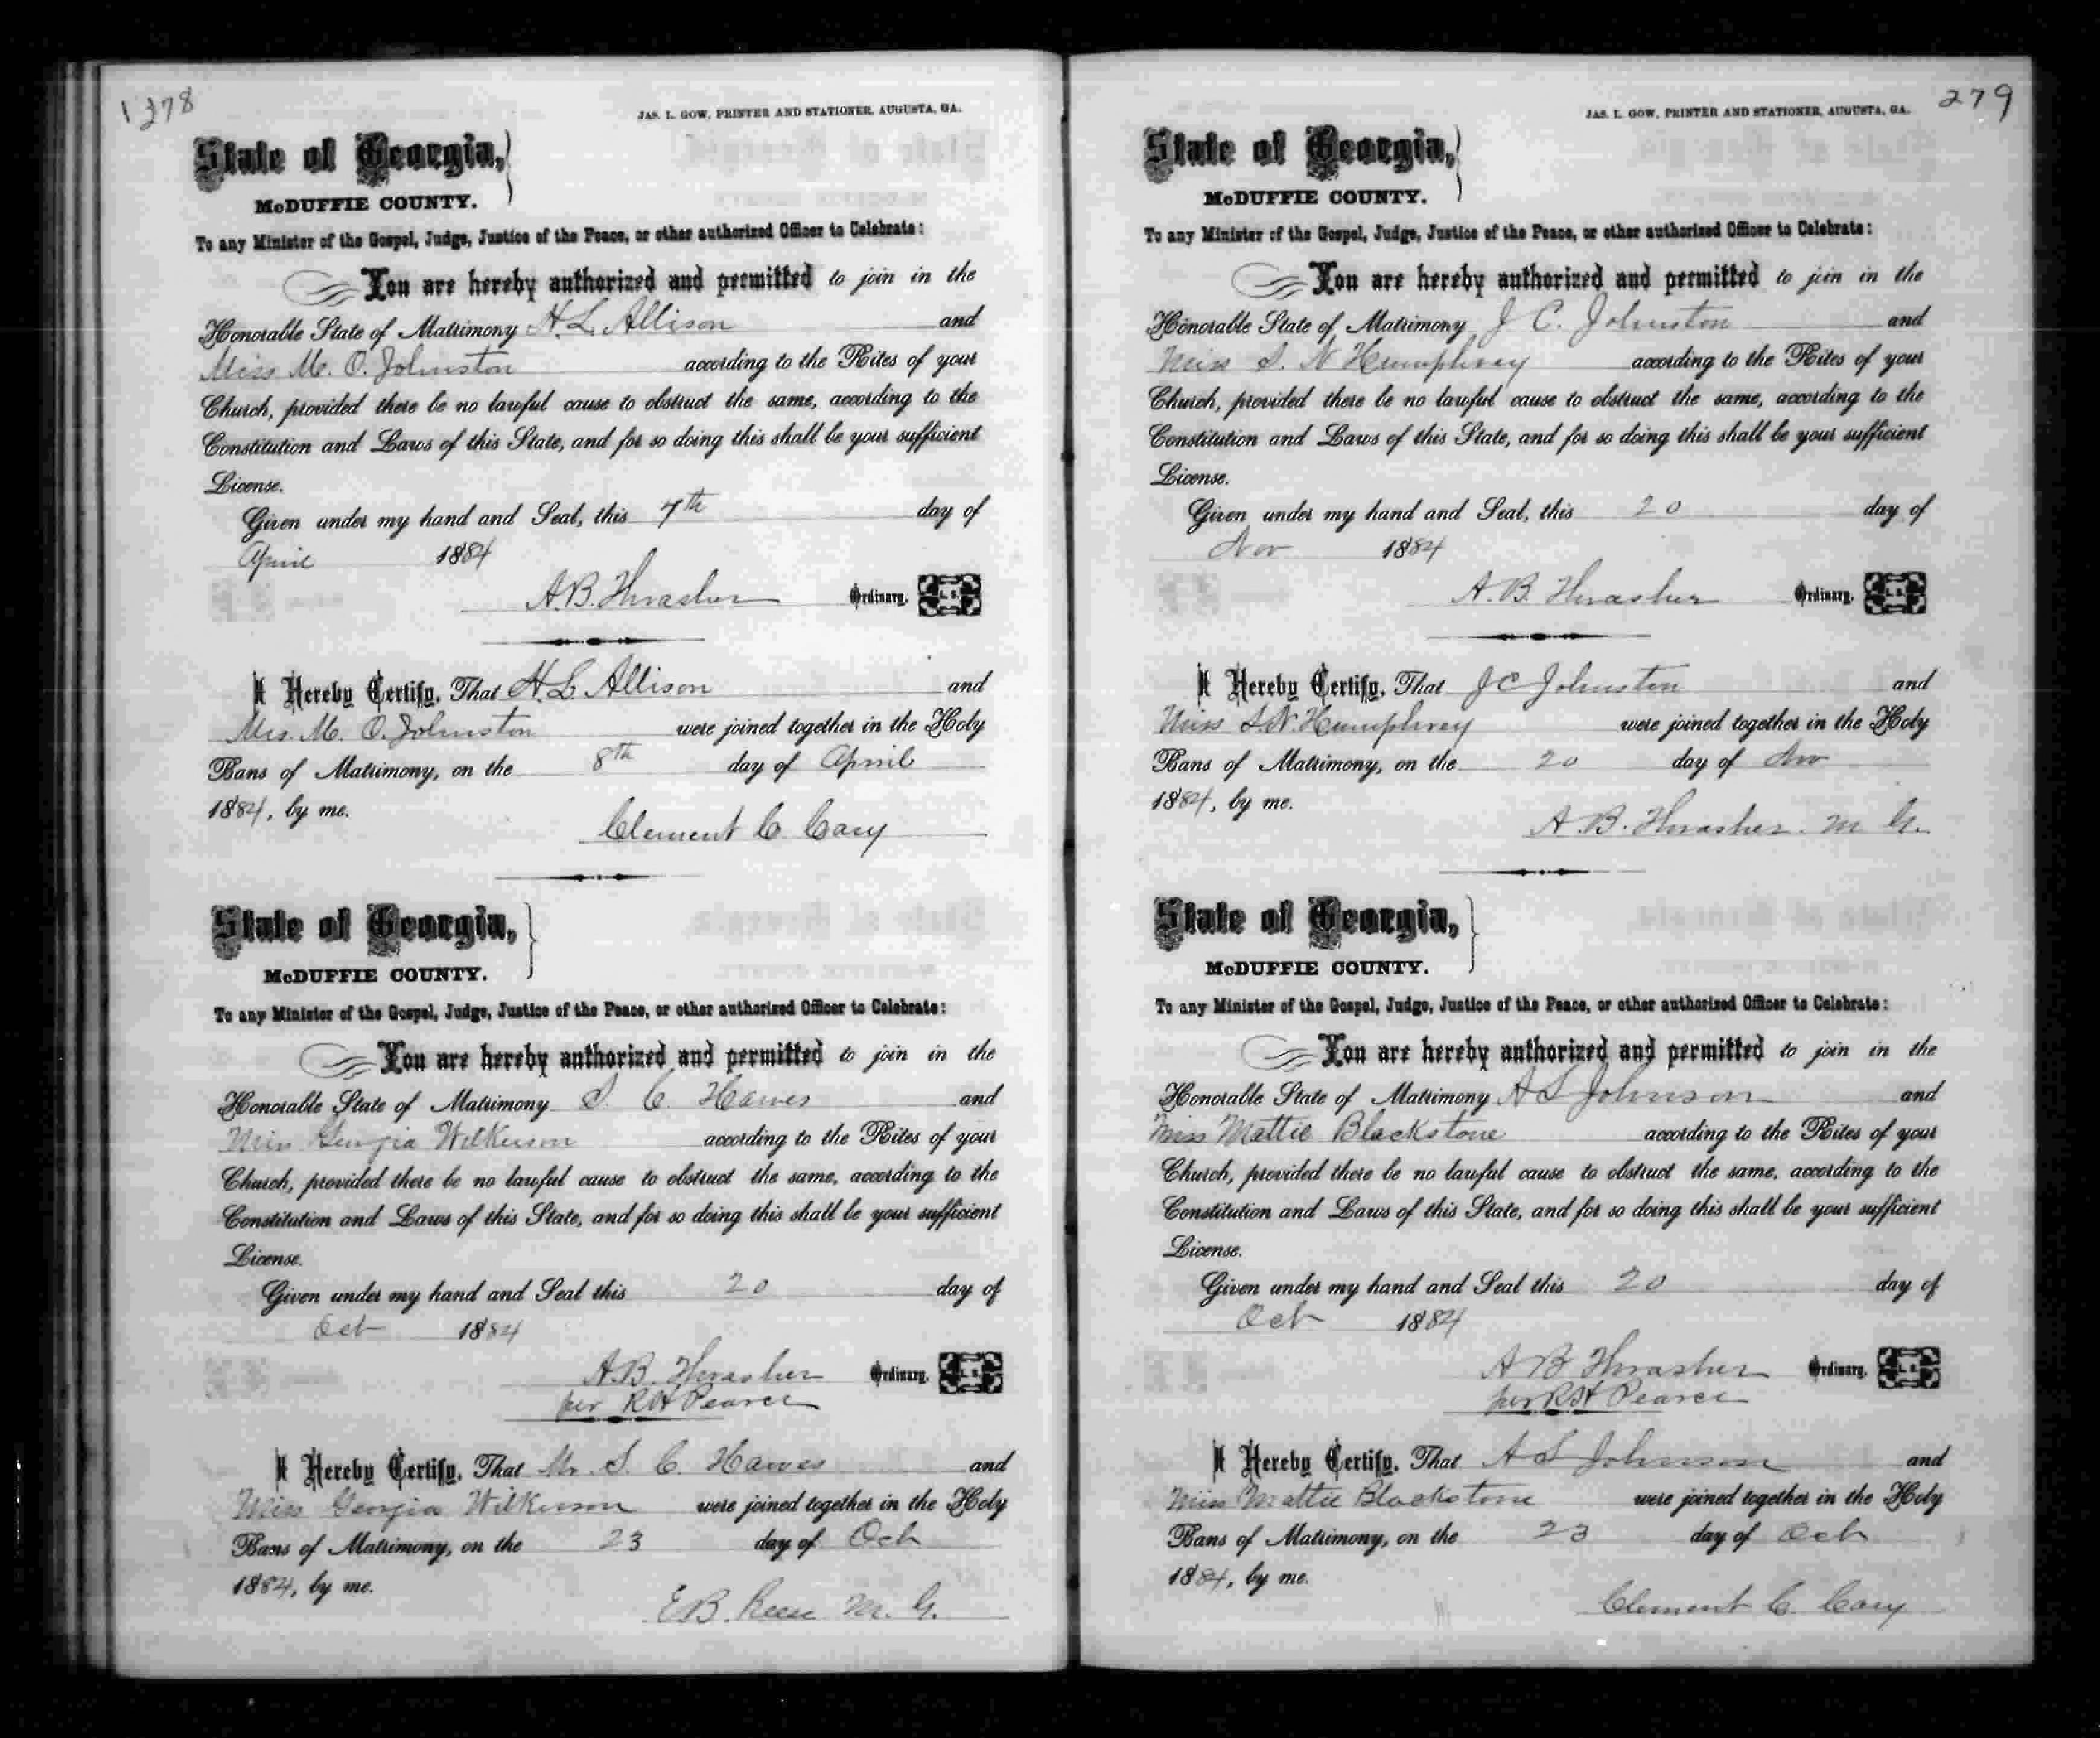 278
JAS. L. GOW, PRINTER AND STATIONER, AUGUSTA, GA.
State of Georgia,
McDUFFIE COUNTY.
To any Minister of the Gospel, Judge, Justice of the Peace, or other authorized Officer to Celebrate:
You are hereby authorized and permitted to join in the
Honorable State of Matrimony H. L. Allison and
Miss M. O. Johnston according to the Rites of your
Church, provided there be no lawful cause to obstruct the same, according to the
Constitution and Laws of this State, and for so doing this shall be your sufficient
License.
Given under my hand and Seal, this 7th day of
April 1884
A. B. Thrasher Ordinary. L. S.
I Hereby Certify, That H. L. Allison and
Mrs. M. O. Johnston were joined together in the Holy
Bans of Matrimony, on the 8th day of April
1884, by me.
Clement C. Cary
State of Georgia,
McDUFFIE COUNTY.
To any Minister of the Gospel, Judge, Justice of the Peace, or other authorized Officer to Celebrate:
You are hereby authorized and permitted to join in the
Honorable State of Matrimony S. C. Hawes and
Miss Georgia Wilkerson according to the Rites of your
Church, provided there be no lawful cause to obstruct the same, according to the
Constitution and Laws of this State, and for so doing this shall be your sufficient
License.
Given under my hand and Seal this 20 day of
Oct 1884
A. B. Thrasher Ordinary. L. S.
per R H Pearce
I Hereby Certify, That Mr. S. C. Hawes and
Miss Georgia Wilkerson were joined together in the Holy
Bans of Matrimony, on the 23 day of Oct
1884, by me.
E B. Reese M. G.
279
JAS. L. GOW, PRINTER AND STATIONER, AUGUSTA, GA.
State of Georgia,
McDUFFIE COUNTY.
To any Minister of the Gospel, Judge, Justice of the Peace, or other authorized Officer to Celebrate:
You are hereby authorized and permitted to join in the
Honorable State of Matrimony J C. Johnston and
Miss S. N Humphrey according to the Rites of your
Church, provided there be no lawful cause to obstruct the same, according to the
Constitution and Laws of this State, and for so doing this shall be your sufficient
License.
Given under my hand and Seal, this 20 day of
Nov 1884
A. B. Thrasher Ordinary. L. S.
I Hereby Certify, That J C Johnston and
Miss S. N. Humphrey were joined together in the Holy
Bans of Matrimony, on the 20 day of Nov
1884, by me.
A. B. Thrasher. M G.
State of Georgia,
McDUFFIE COUNTY.
To any Minister of the Gospel, Judge, Justice of the Peace, or other authorized Officer to Celebrate:
You are hereby authorized and permitted to join in the
Honorable State of Matrimony A S Johnson and
Miss Mattie Blackstone according to the Rites of your
Church, provided there be no lawful cause to obstruct the same, according to the
Constitution and Laws of this State, and for so doing this shall be your sufficient
License.
Given under my hand and Seal this 20 day of
Oct 1884
A B Thrasher Ordinary. L. S.
per R H Pearce
I Hereby Certify, That A S Johnson and
Miss Mattie Blackstone were joined together in the Holy
Bans of Matrimony, on the 23 day of Oct
1884, by me.
Clement C. Cary